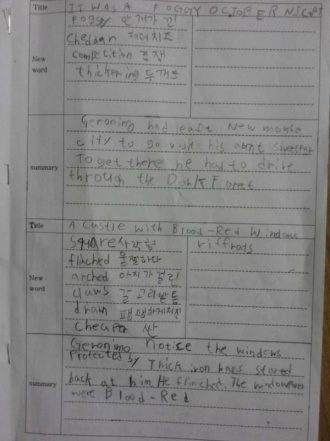 Title IT WAS A FOGGY OCTOBER NIGHT
foggy 안개가 낀
Cheddar 체더치즈
New word
competition 경쟁
thickening 두꺼운
Geronimo had left New mouse
city to go visit his aunt Sweetfur
summary
To get there he has to drive
through the Dark Forest
Title A Castle with Blood-Red Windows
Square 사각형 riffrats
flinched 움찔하다
New word
arched 아치가
claws 갈고리발톱
drain
cheaper 싼
Geronimo Notice the windows
Protected by Thick iron bars stared
summary
back at him He flinched. The windowpanes
were Blood-Red